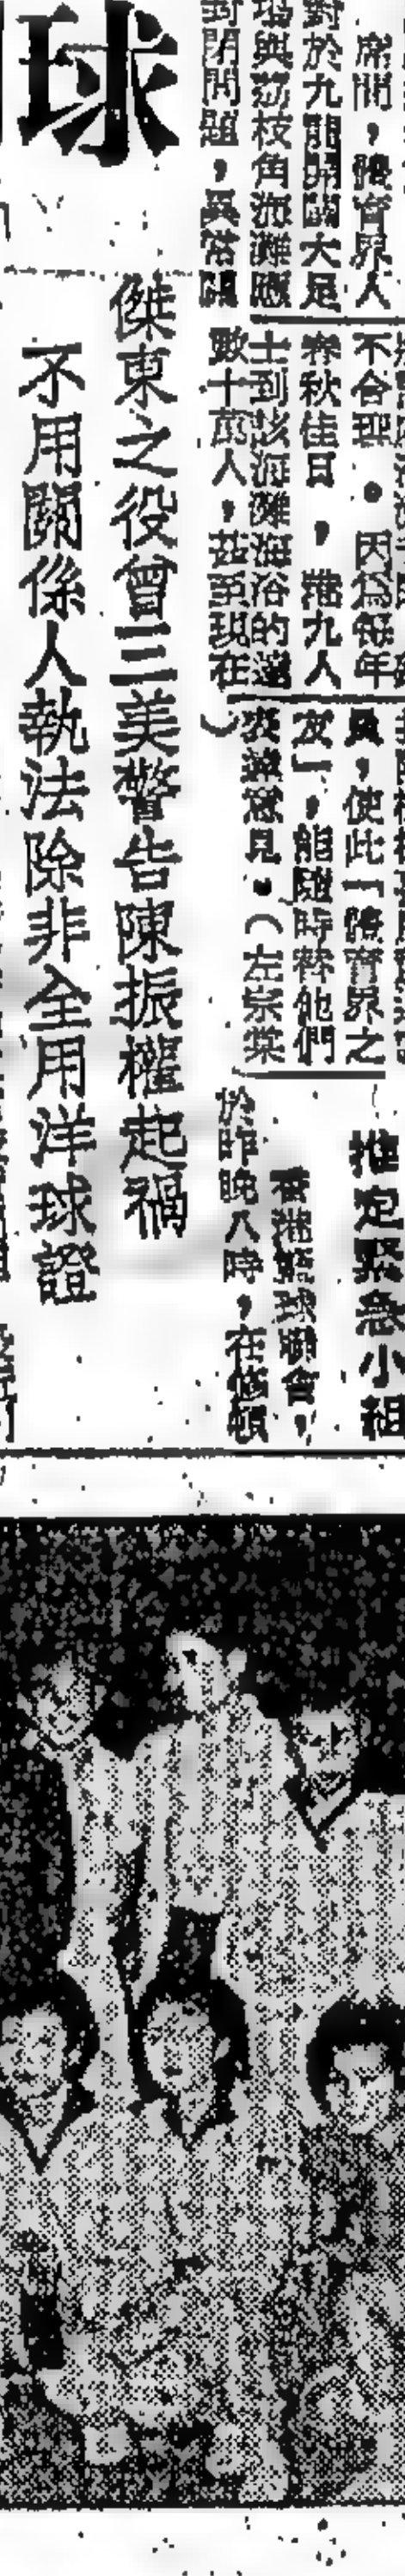 席間，體育界人
對於九龍興闢大足
場與荔枝角海灘應
封閉問題，異常
不合理。因為每年
春秋佳日，港九人
士到該海灘海浴的達
數十萬人，甚至現在
員，使此一體育界之
友」，能隨時替他們
表達意見。（左宗棠
）
推定緊急小組
香港籃球聯會，
於昨晚八時，在修頓
球
傑東之役曾三美警告陳振權起禍
不用關係人執法除非全用洋球證